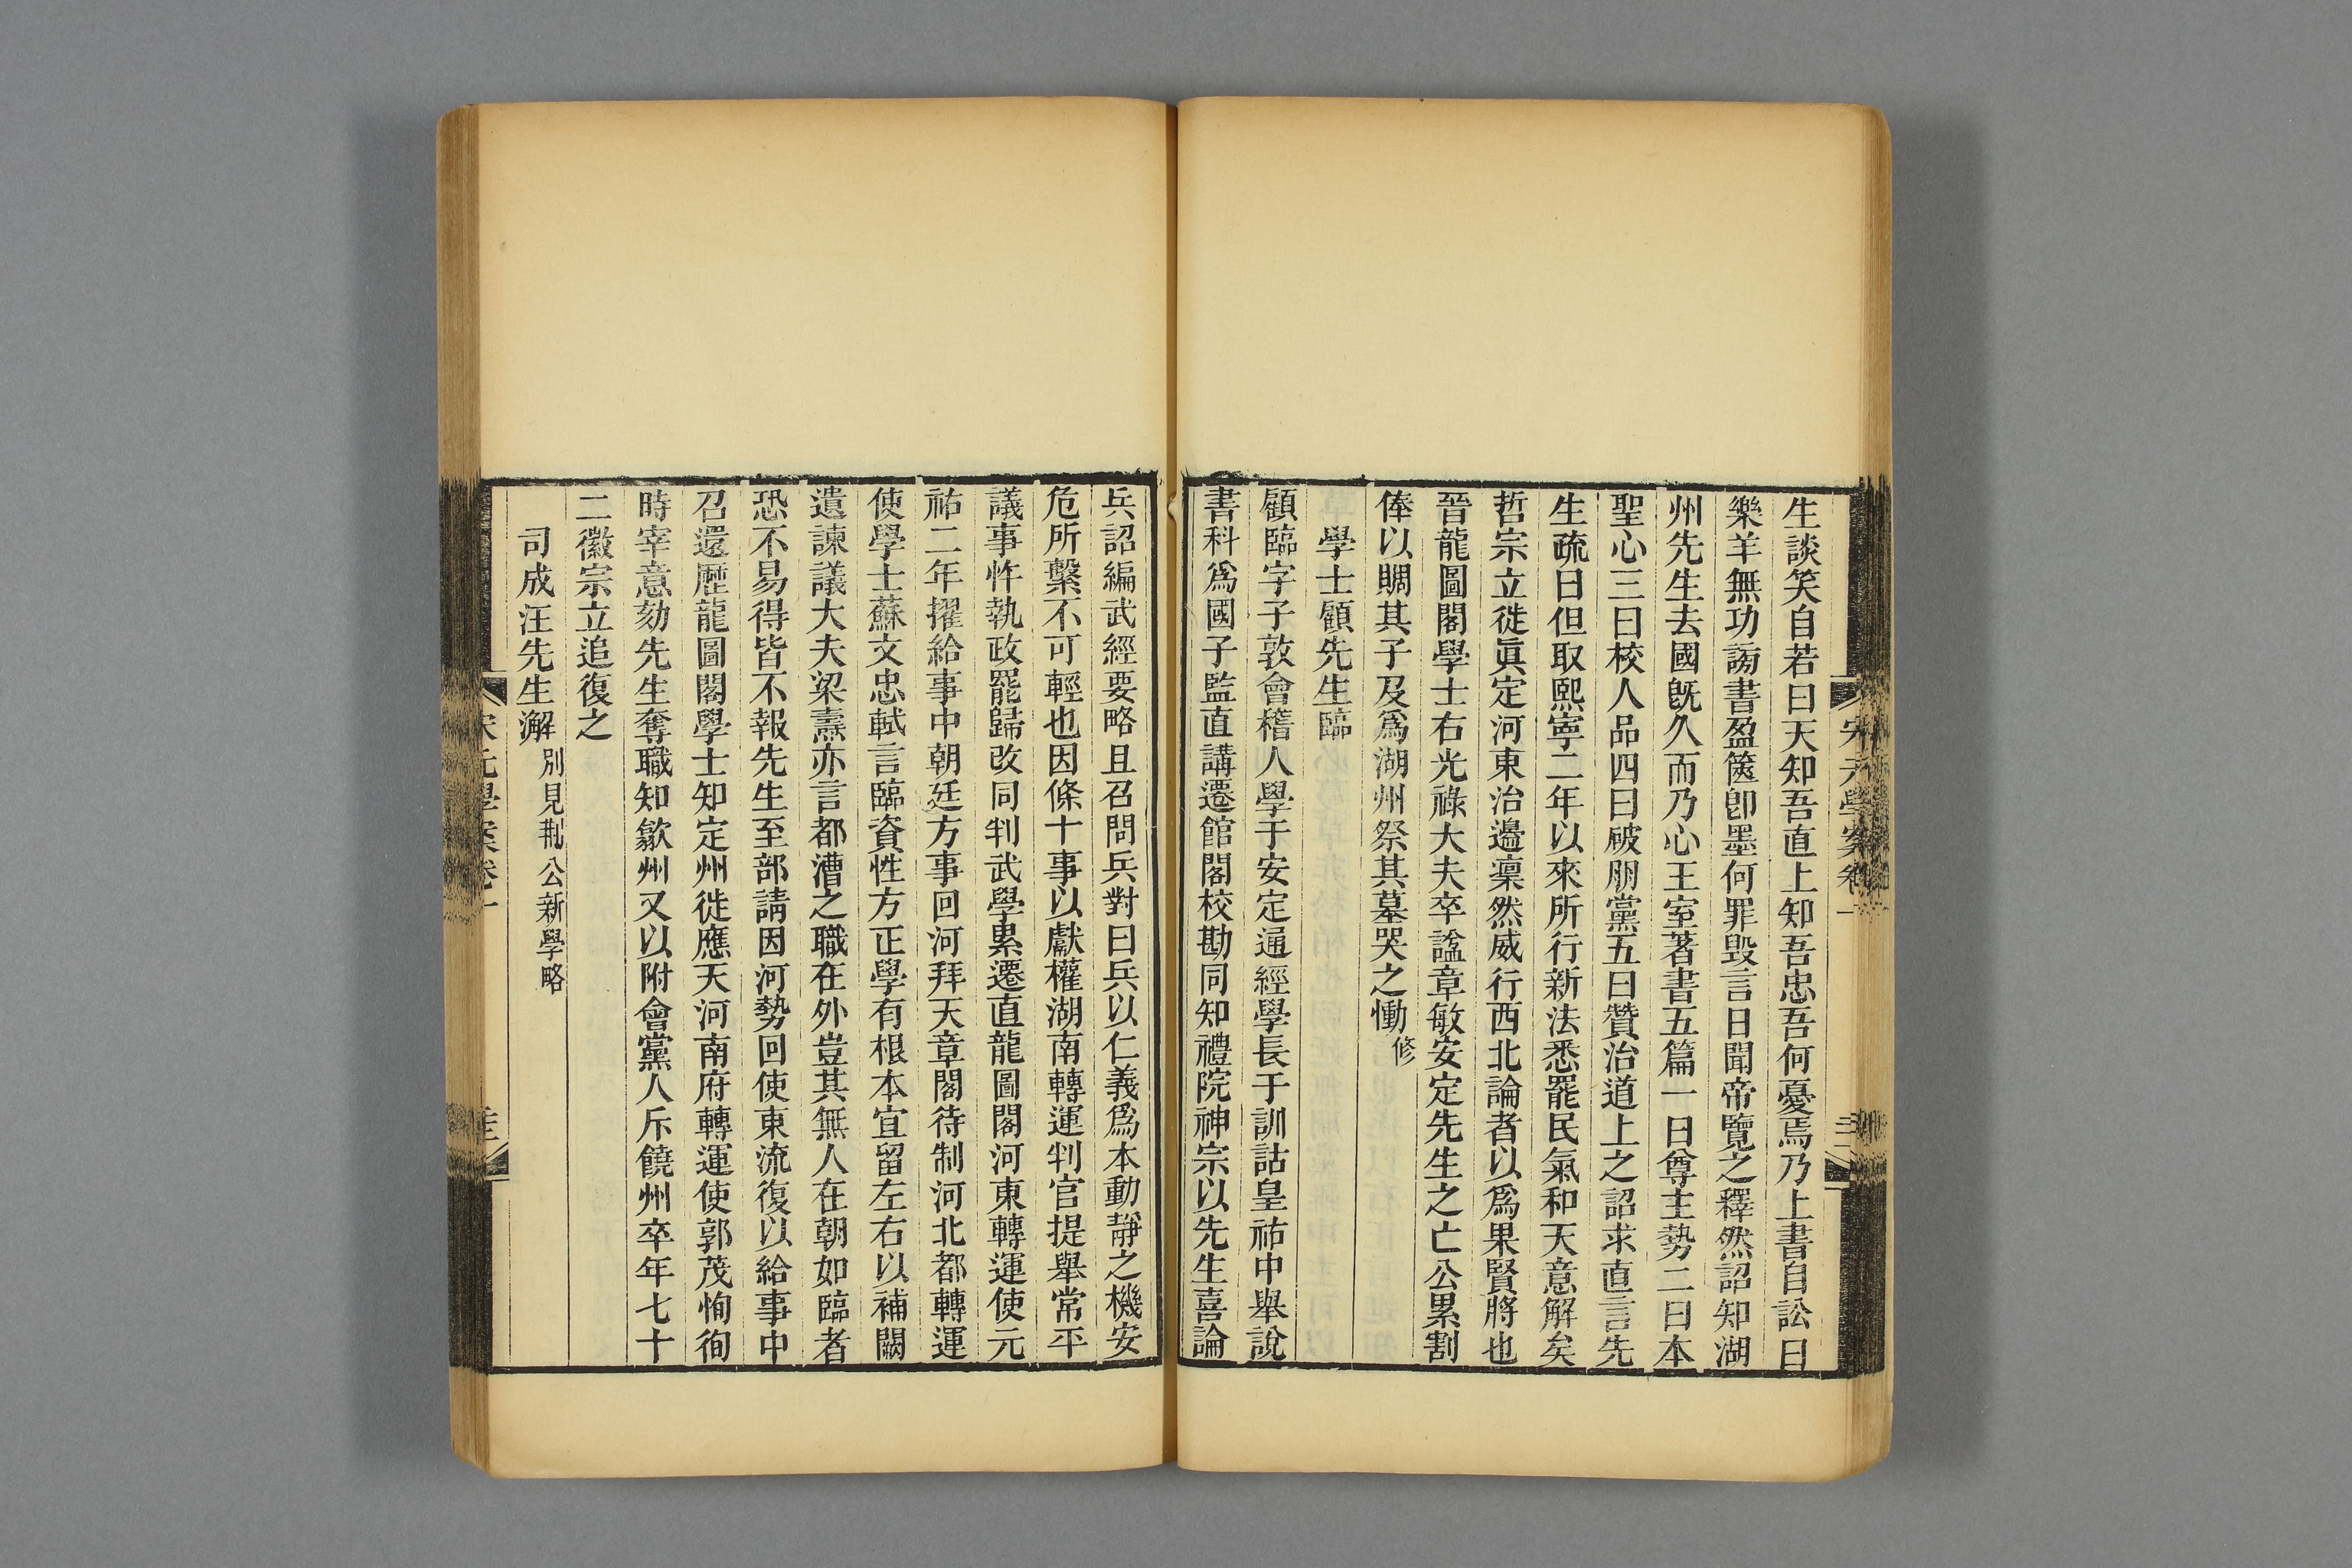 生談笑自若曰天知吾直上知吾忠吾何憂焉乃上書自訟曰
樂羊無功謗書盈篋卽墨何罪毀言日聞帝覽之釋然詔知湖
州先生去國旣久而乃心王室著書五篇一曰尊主勢二曰本
聖心三曰校人品四曰破朋黨五曰贊治道上之詔求直言先
生疏曰但取熙寧二年以來所行新法悉罷民氣和天意解矣
哲宗立徙眞定河東治邊凜然威行西北論者以爲果賢將也
晉龍圖閣學士右光祿大夫卒諡章敏安定先生之亡公累割
俸以賙其子及爲湖州祭其墓哭之慟修
學士顧先生臨
顧臨字子敦會稽人學于安定通經學長于訓詁皇祐中舉說
書科爲國子監直講遷館閣校勘同知禮院神宗以先生喜論
兵詔編武經要略且召問兵對曰兵以仁義爲本動靜之機安
危所繫不可輕也因條十事以獻權湖南轉運判官提舉常平
議事忤執政罷歸改同判武學累遷直龍圖閣河東轉運使元
祐二年擢給事中朝廷方事回河拜天章閣待制河北都轉運
使學士蘇文忠軾言臨資性方正學有根本宜留左右以補闕
遺諫議大夫梁燾亦言都漕之職在外豈其無人在朝如臨者
恐不易得皆不報先生至部請因河勢回使東流復以給事中
召還歷龍圖閣學士知定州徙應天河南府轉運使郭茂恂徇
時宰意劾先生奪職知歙州又以附會黨人斥饒州卒年七十
二徽宗立追復之
司成汪先生澥別見荆公新學略
宋元學案卷一